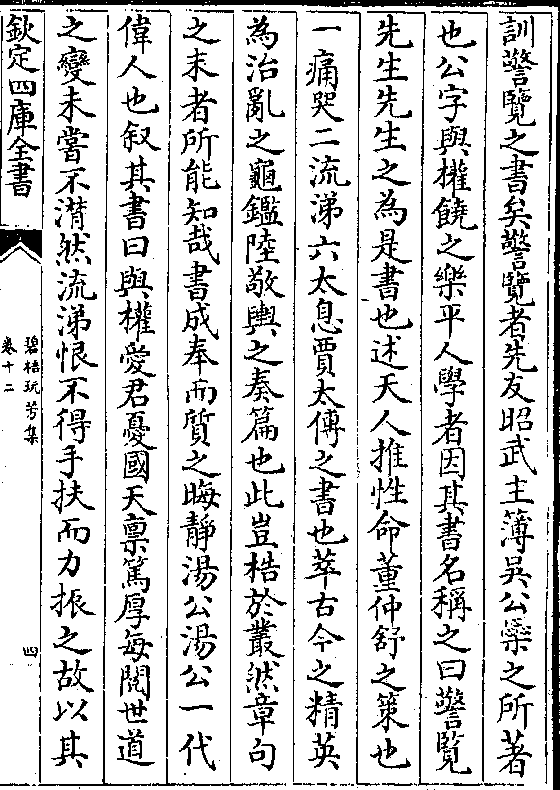 訓警覽之書矣警覽者先友昭武主簿吳公欒之所著
也公字與權饒之樂平人學者因其書名稱之曰警覽
先生先生之為是書也述天人推性命董仲舒之策也
一痛哭二流涕六太息賈太傅之書也萃古今之精英
為治亂之龜鑑陸敬輿之奏篇也此豈梏於叢然章句
之末者所能知哉書成奉而質之晦靜湯公湯公一代
偉人也叙其書曰與權愛君憂國天禀篤厚每閱世道
之變未嘗不潸然流涕恨不得手扶而力振之故以其
欽定四庫全書
碧梧玩芳集
卷十二
四